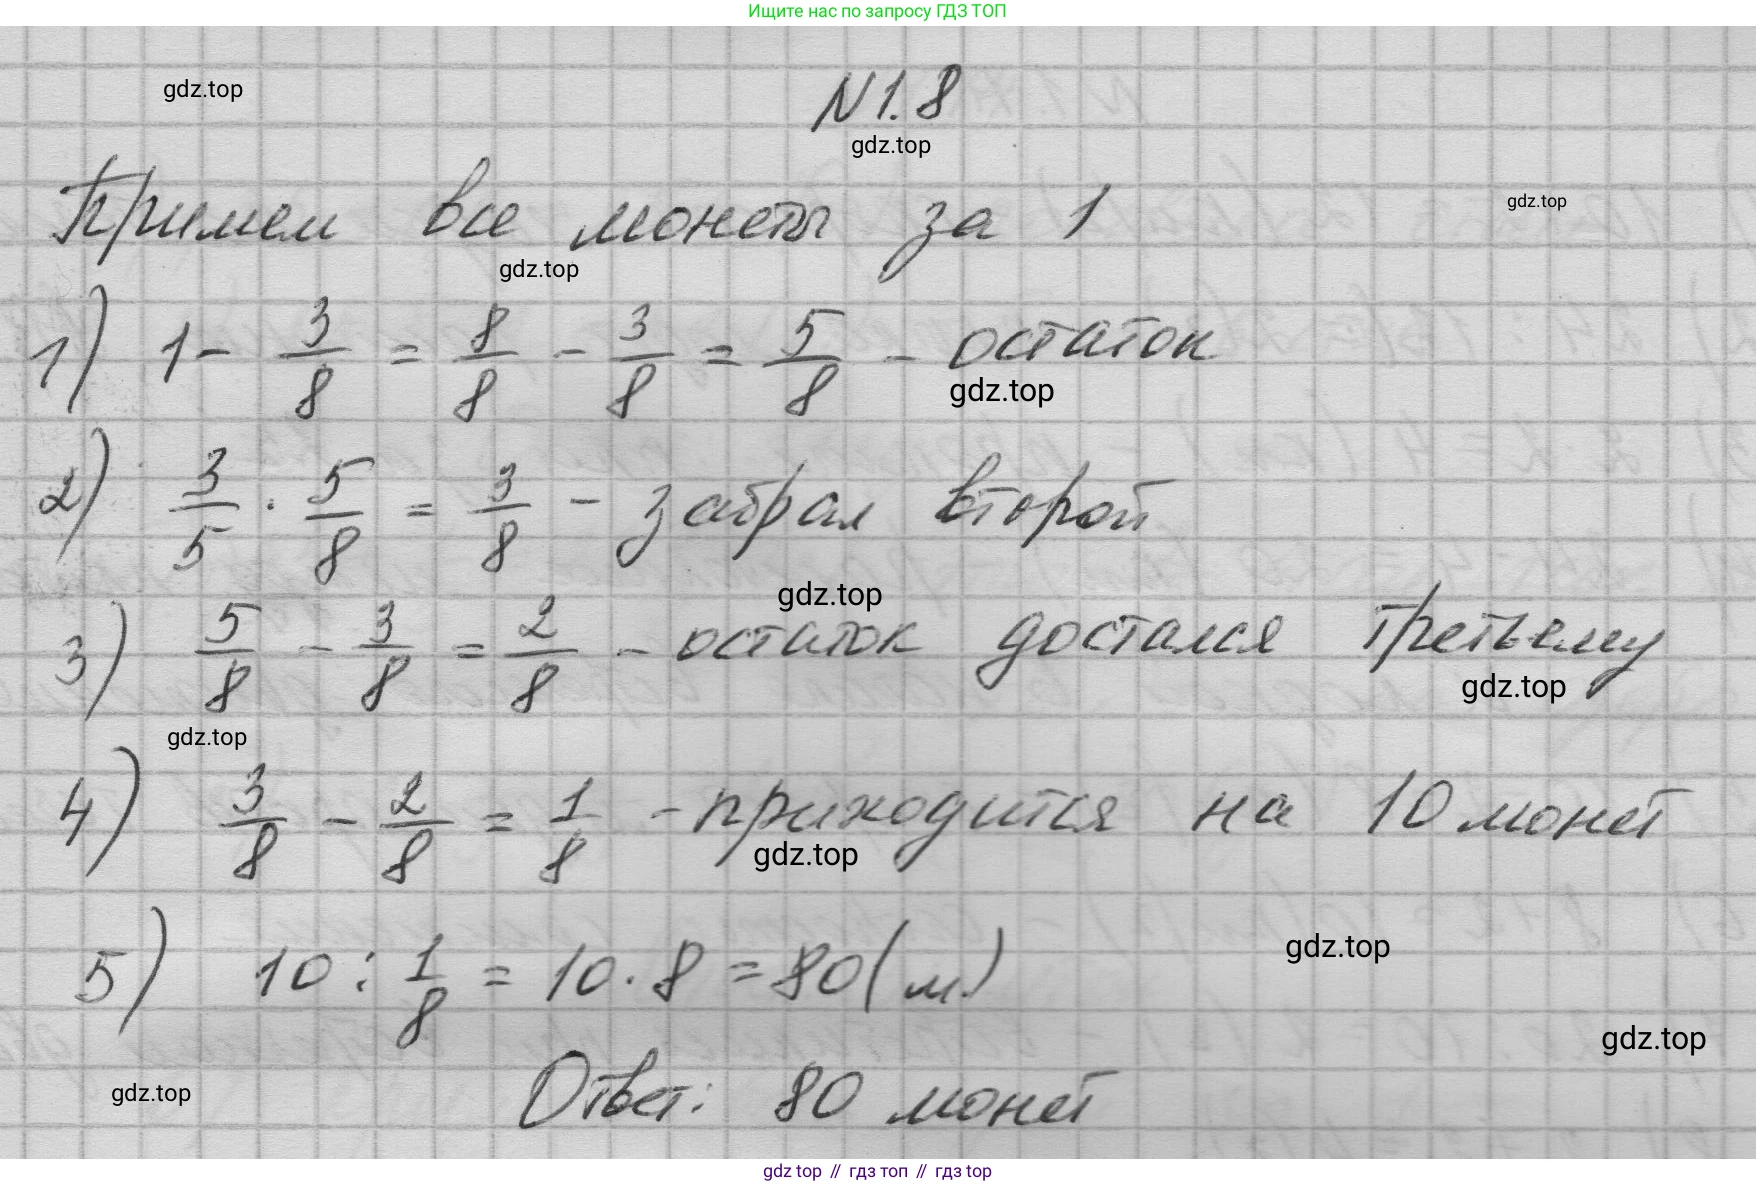 Ищите нас по запросу ГДЗ ТОП
gdz.top
N1.8
gdz.top
Примем все монеты за 1
gdz.top
gdz.top
1) 1 - 3/8 = 8/8 - 3/8 = 5/8 - остаток
gdz.top
2) 3/5 · 5/8 = 3/8 - забрал второй
gdz.top
3) 5/8 - 3/8 = 2/8 - остаток достался третьему
gdz.top
gdz.top
4) 3/8 - 2/8 = 1/8 - приходится на 10 монет
gdz.top
5) 10 : 1/8 = 10 · 8 = 80 (м.)
gdz.top
gdz.top
Ответ: 80 монет
gdz.top
gdz top // гдз топ // гдз top